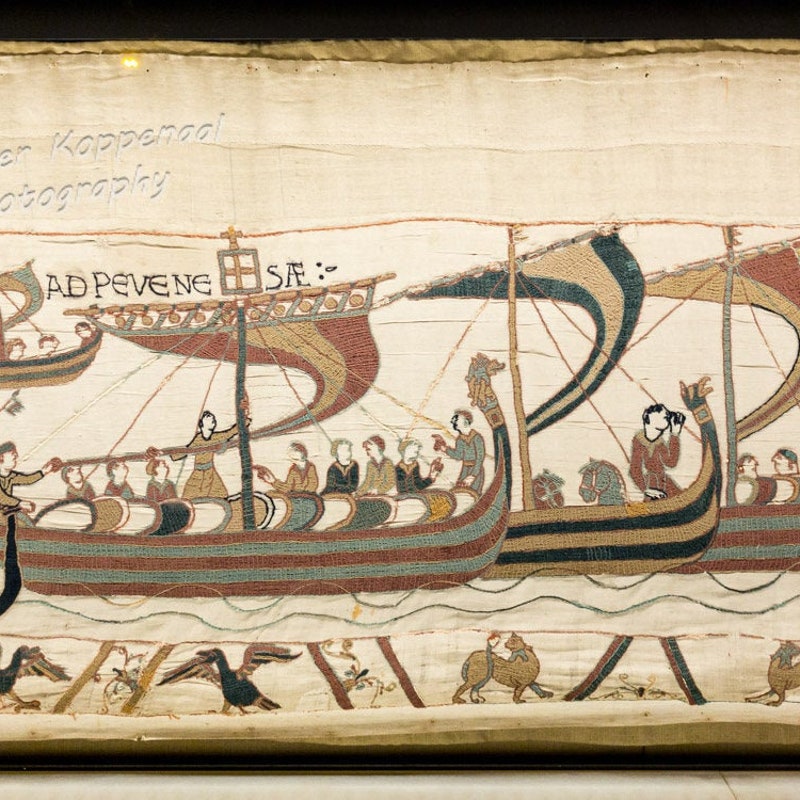 er Koppenaal
otography
AD PEVENE SÆ :-